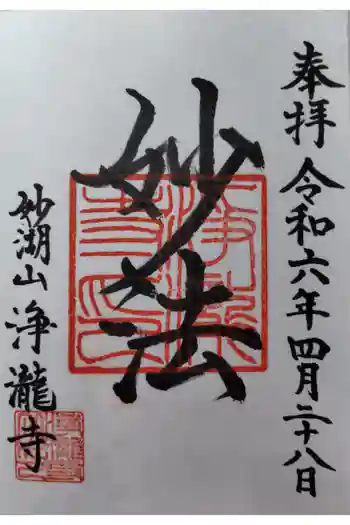 奉拝 令和六年四月二十八日
妙法
妙湖山 浄瀧寺